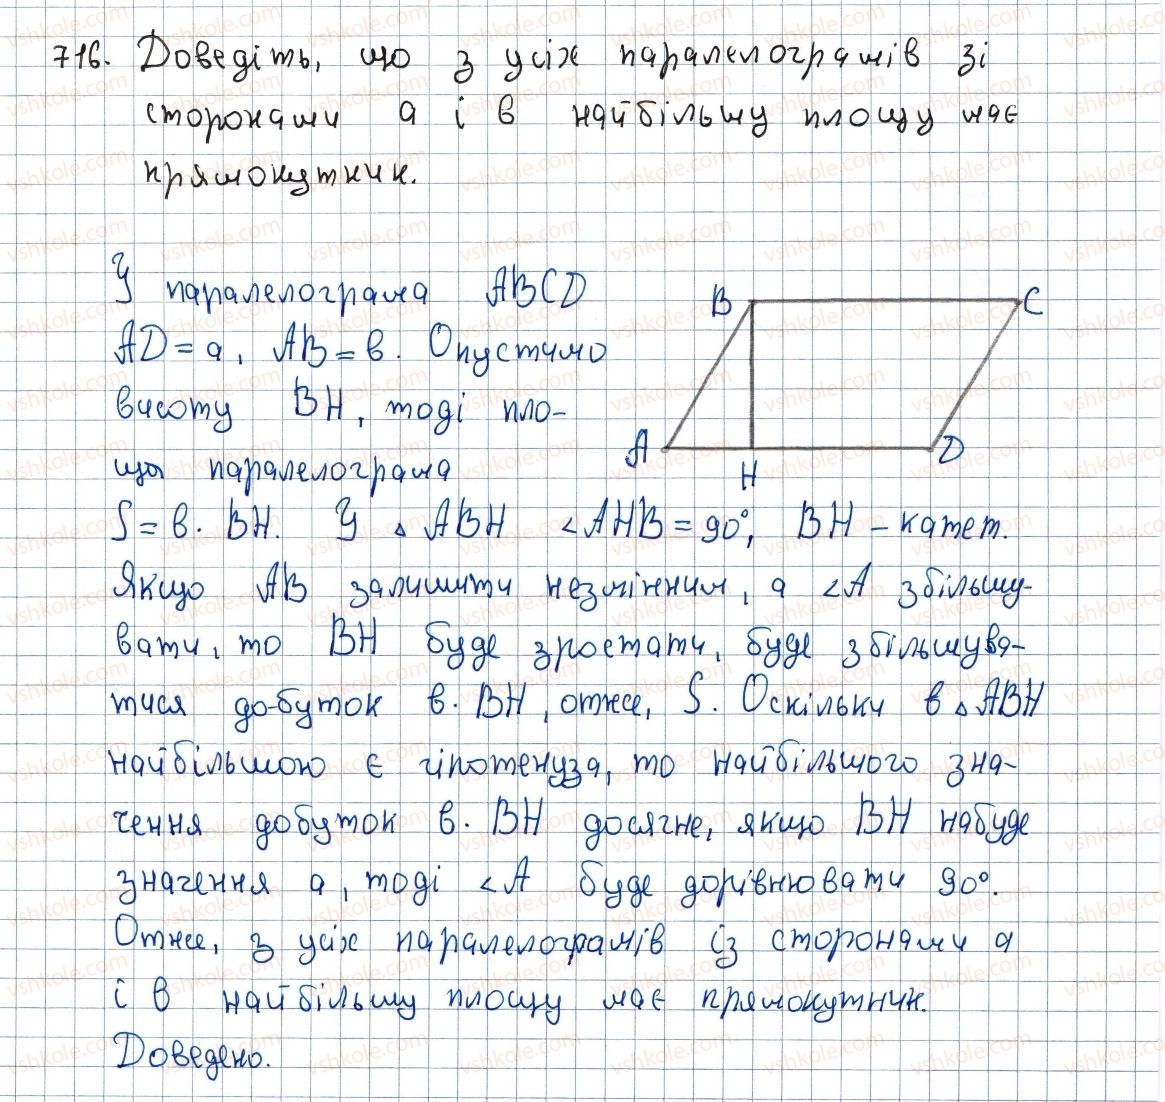 716. Доведіть, що з усіх паралелограмів зі
сторонами а і в найбільшу площу має
прямокутник.
У паралелограма ABCD
AD = a, AB = в. Опустимо
висоту BH, тоді пло-
ща паралелограма
S = в · BH. У △ ABH ∠AHB = 90°, BH – катет.
Якщо AB залишити незмінним, а ∠A збільшу-
вати, то BH буде зростати, буде збільшува-
тися добуток в · BH, отже, S. Оскільки в △ ABH
найбільшою є гіпотенуза, то найбільшого зна-
чення добуток в · BH досягне, якщо BH набуде
значення а, тоді ∠A буде дорівнювати 90°.
Отже, з усіх паралелограмів із сторонами а
і в найбільшу площу має прямокутник.
Доведено.
B C
A H D
vshkole.com